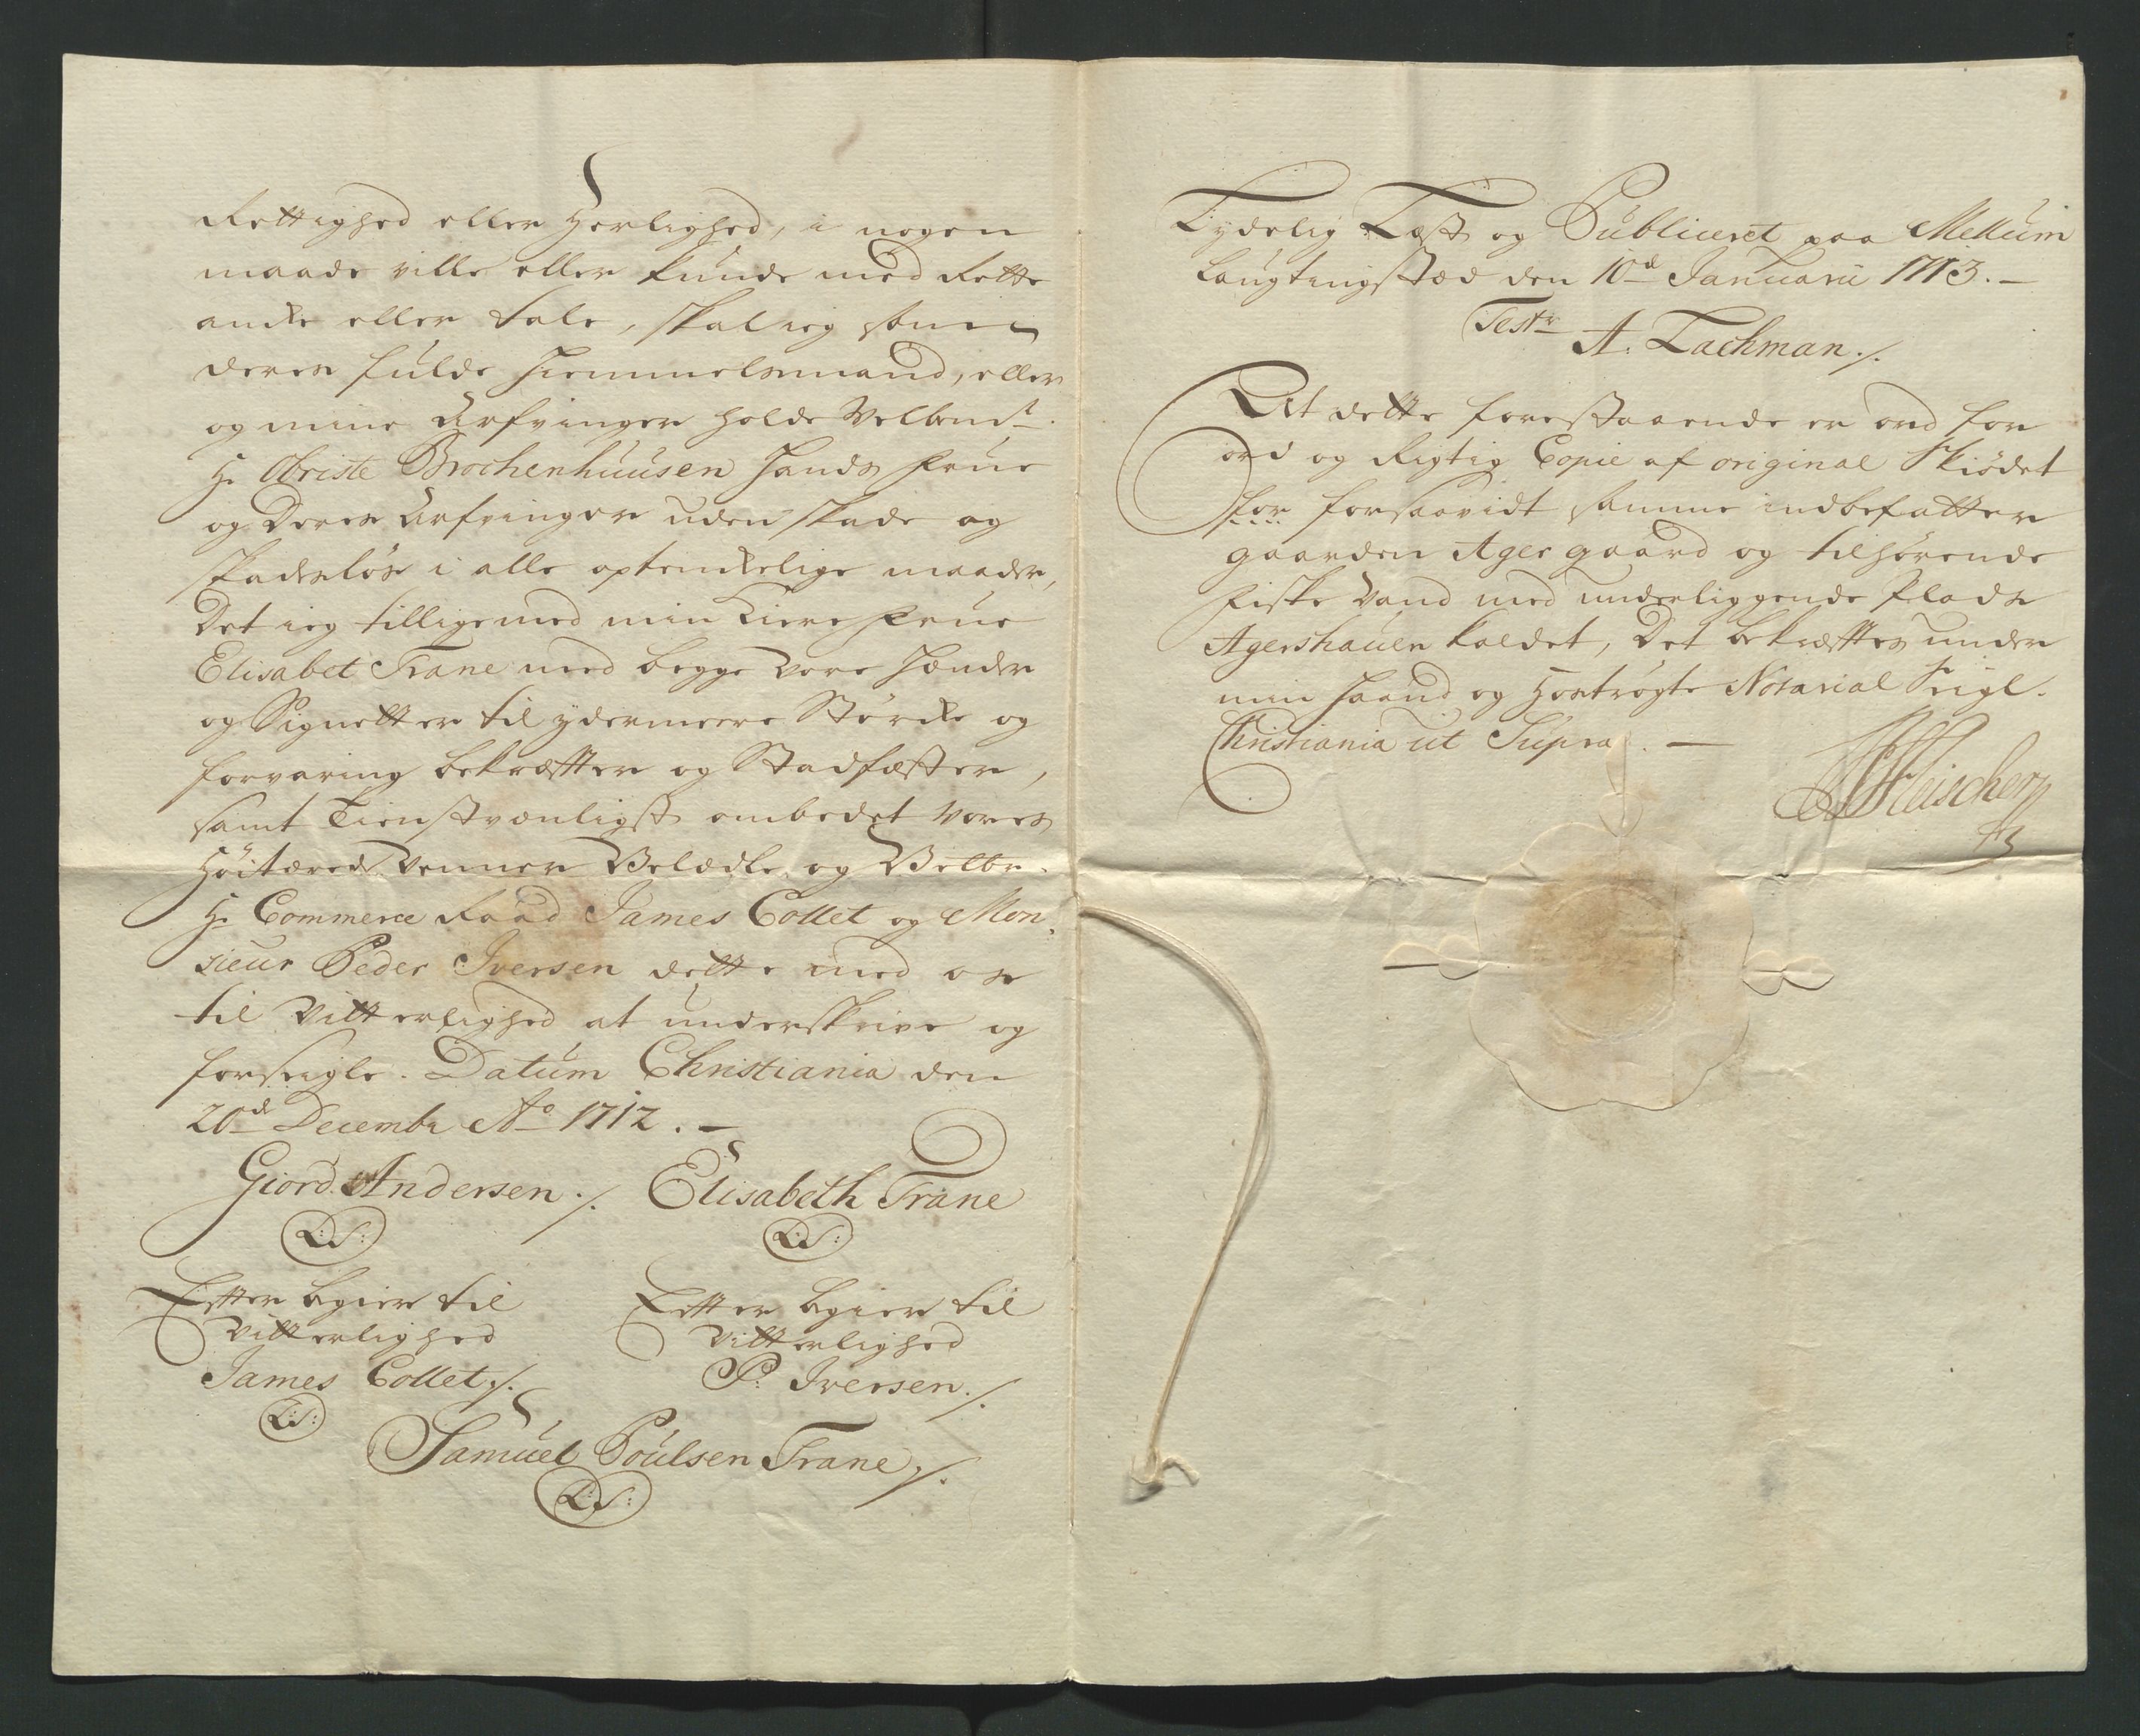 Rettighed eller Herlighed, i nogen
maade ville eller kunde med Rette
anke eller tale, skal ieg være
deres fulde Hiemmelsmand, eller
og mine Arfvinger holde Velbemt.
Hr. Obriste Brochenhuusen Hands Frue
og Deres Arfvinger uden skade og
skadesløs i alle optenkelige maader,
Det ieg tilligemed min Kiere Frue
Elisabet Trane med begge vore Hænder
og Signetter til ydermeere Störke og
forvaring bekræfter og Stadfæster,
samt Tienstvænligst ombedet vores
Höitærede Venner Velædle og Velbr.
Hr. Commerce Raad James Collet og Mon,
sieur Peder Iversen dette med os
til Vitterlighed at underskrive og
forseigle. Datum Christiania den
20de Decembr Ao 1712. —
Giord Andersen ./. Elisabeth Trane
L:S: L:S:
Efter begier til Efter begier til
Vitterlighed Vitterlighed
James Collet ./. P: Iversen ./.
L:S:
Samuel Poulsen Trane ./.
L:S:
Tydelig Læst og Publiceret paa Mellum
Laugtingstæd den 10de Januarii 1713. —
Testr
A. Lachman ./.
At dette forestaaende er ord for
ord og Rigtig Copie af original Skiödet
for forsaavidt samme indbefatter
gaarden Ager gaard og tilhørende
Fiske Vand med underliggende Plads
Agershauen kaldet, Det bekræftes under
min Haand og Hoströgte Notarial Seigl.
Christiania ut Supra. —
Fleischer